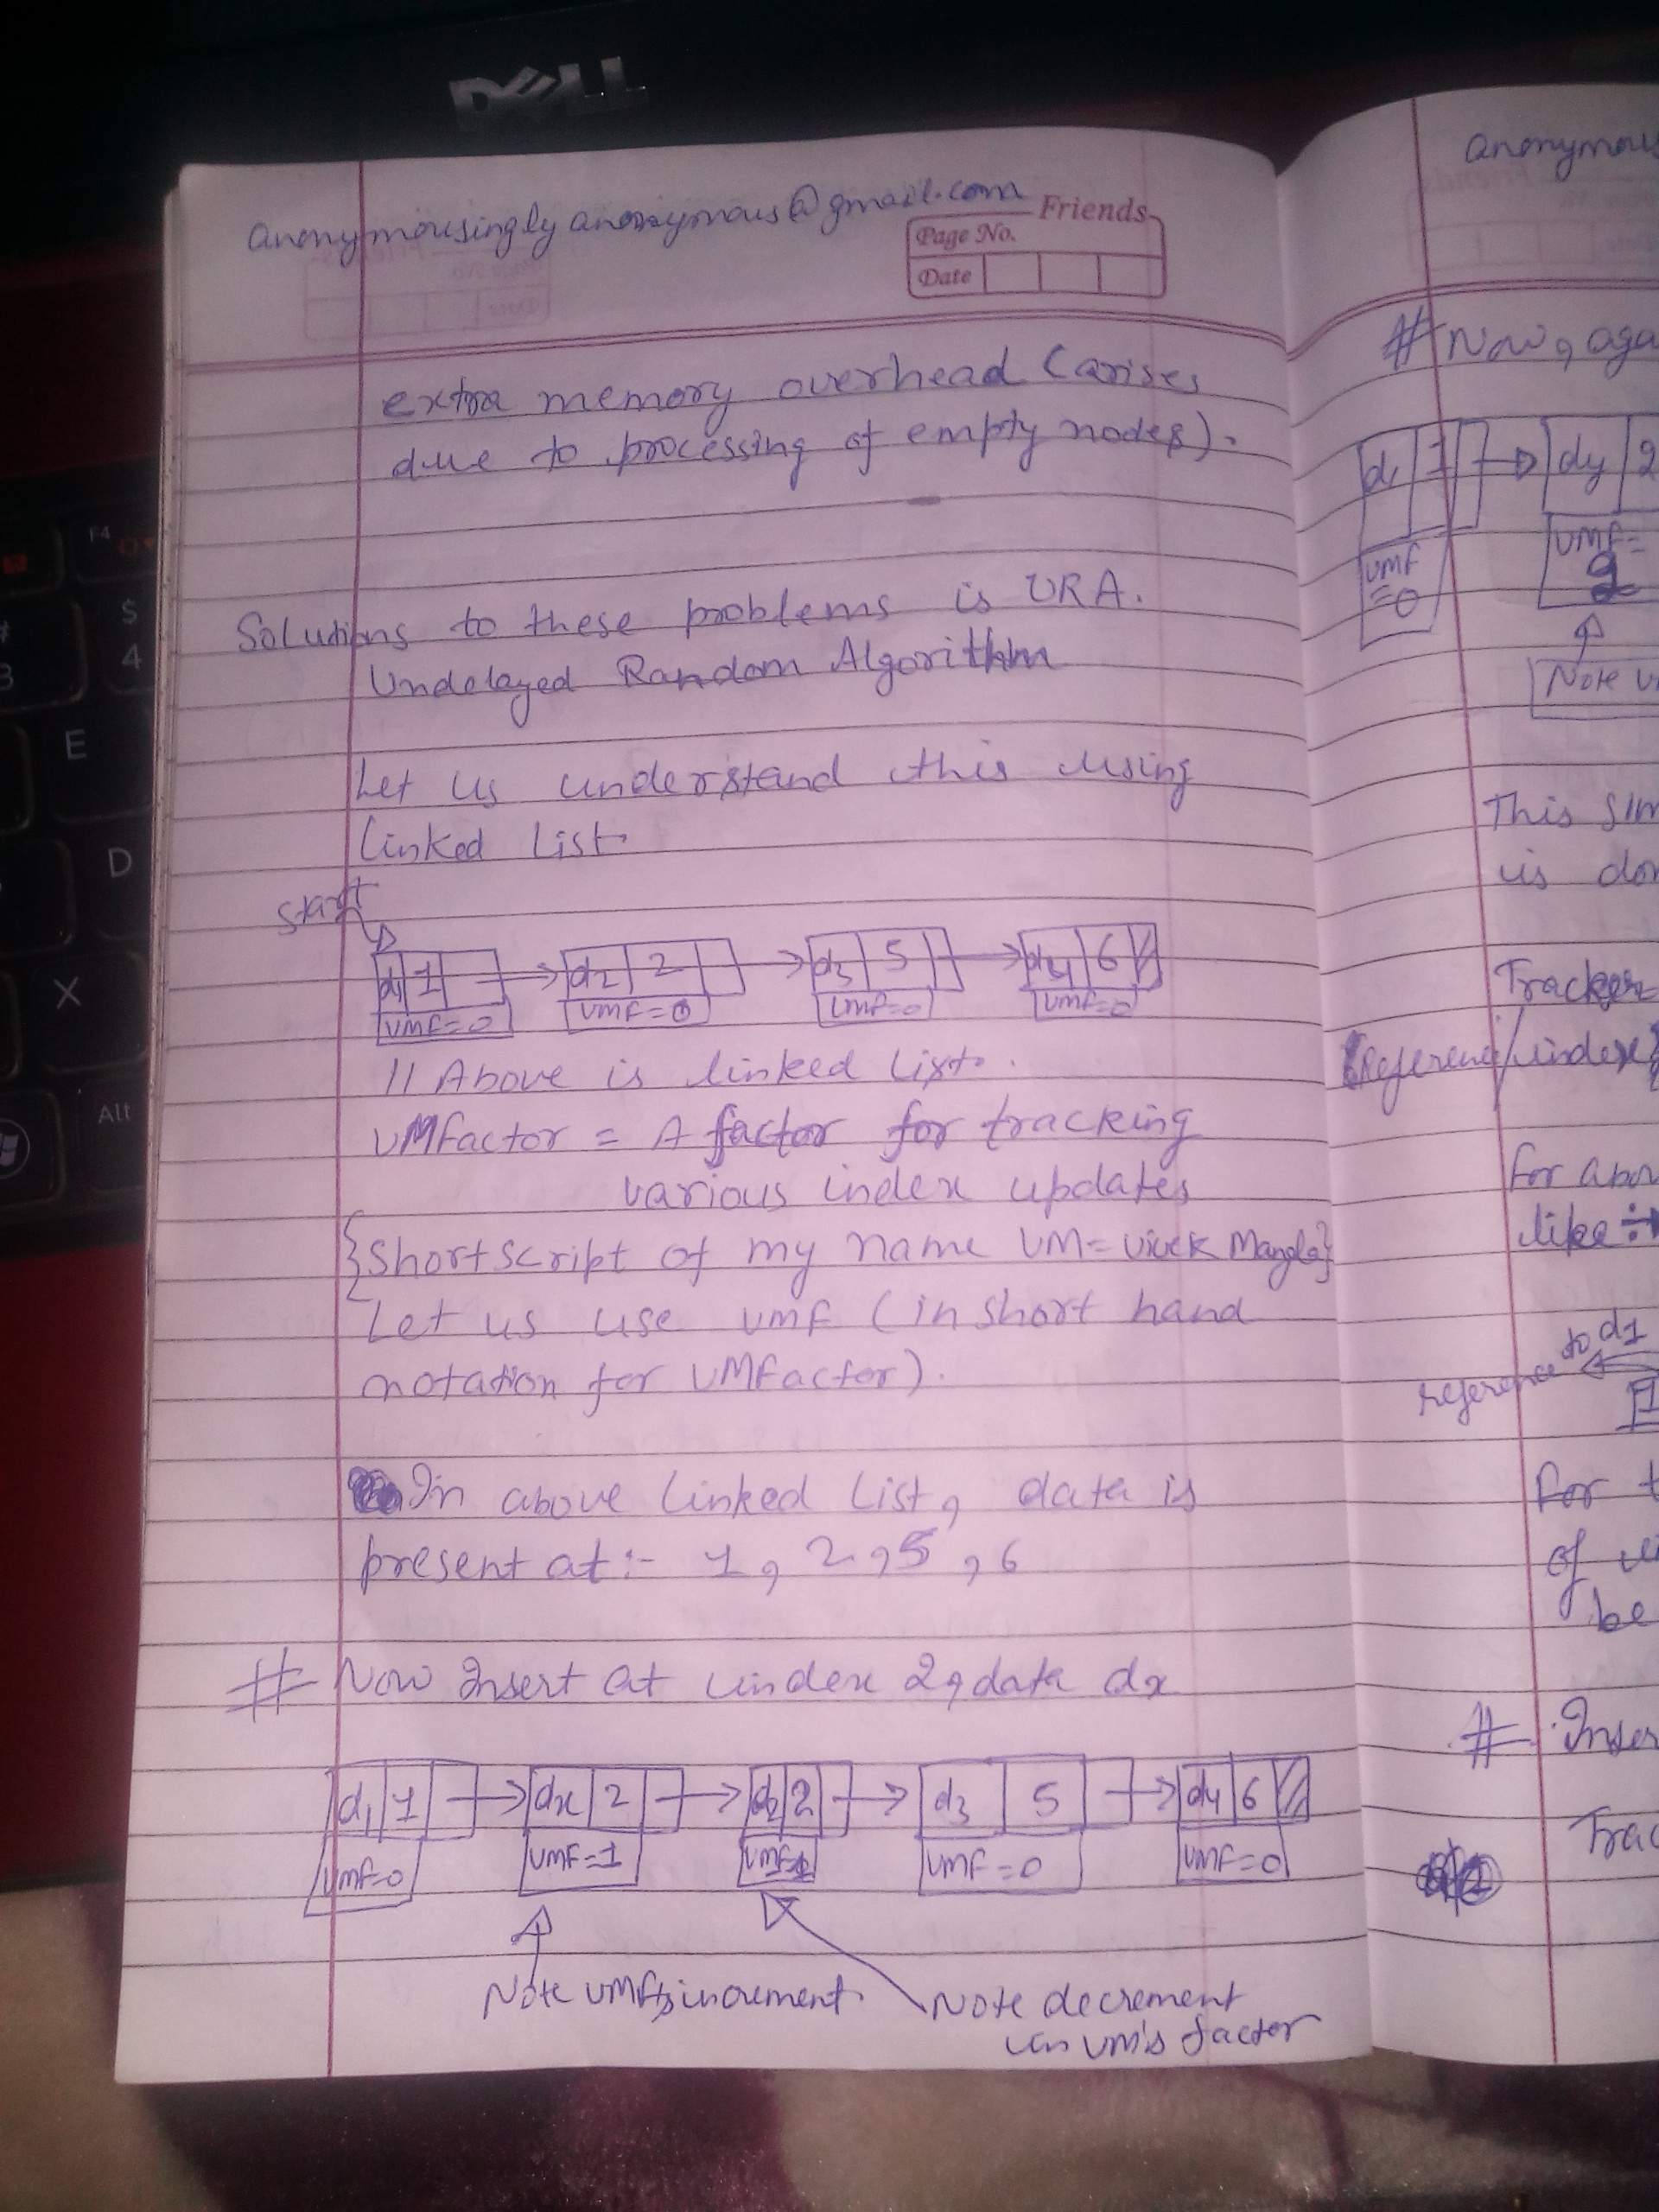 DELL
anonymousinglyanonymous@gmail.com
Friends
Page No.
Date
extra memory overhead (arises
due to processing of empty nodes).
Solutions to these problems is URA.
Undelayed Random Algorithm
Let us understand this using
Linked List.
start
d1 1 d2 2 d3 5 d4 6
VMF=0 VMF=0 VMF=0 VMF=0
// Above is linked list.
VMFactor = A factor for tracking
various index updates
{Short script of my name VM=
Let us use VMF (in short hand
notation for VMFactor).
In above Linked List, data is
present at:- 1, 2, 5, 6
# Now Insert at index 2, data dx
d1 1 dx 2 d2 2 d3 5 d4 6
VMF=0 VMF=1 VMF= VMF=0 VMF=0
Note VMF's increment.
Note decrement
in VM's factor
anonymous
# Now, aga
d1 1 dy 2
VMF
=0
VMF=
2
Note
This sim
is don
Tracker=
{Reference/index}
for abov
like
reference to d1
for t
of li
be
# Inser
Trac
F4
$
4
#
3
E
D
X
Alt